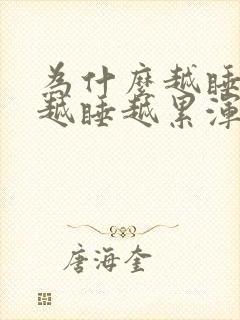 為什麼越睡
越睡越累渾
唐海奎